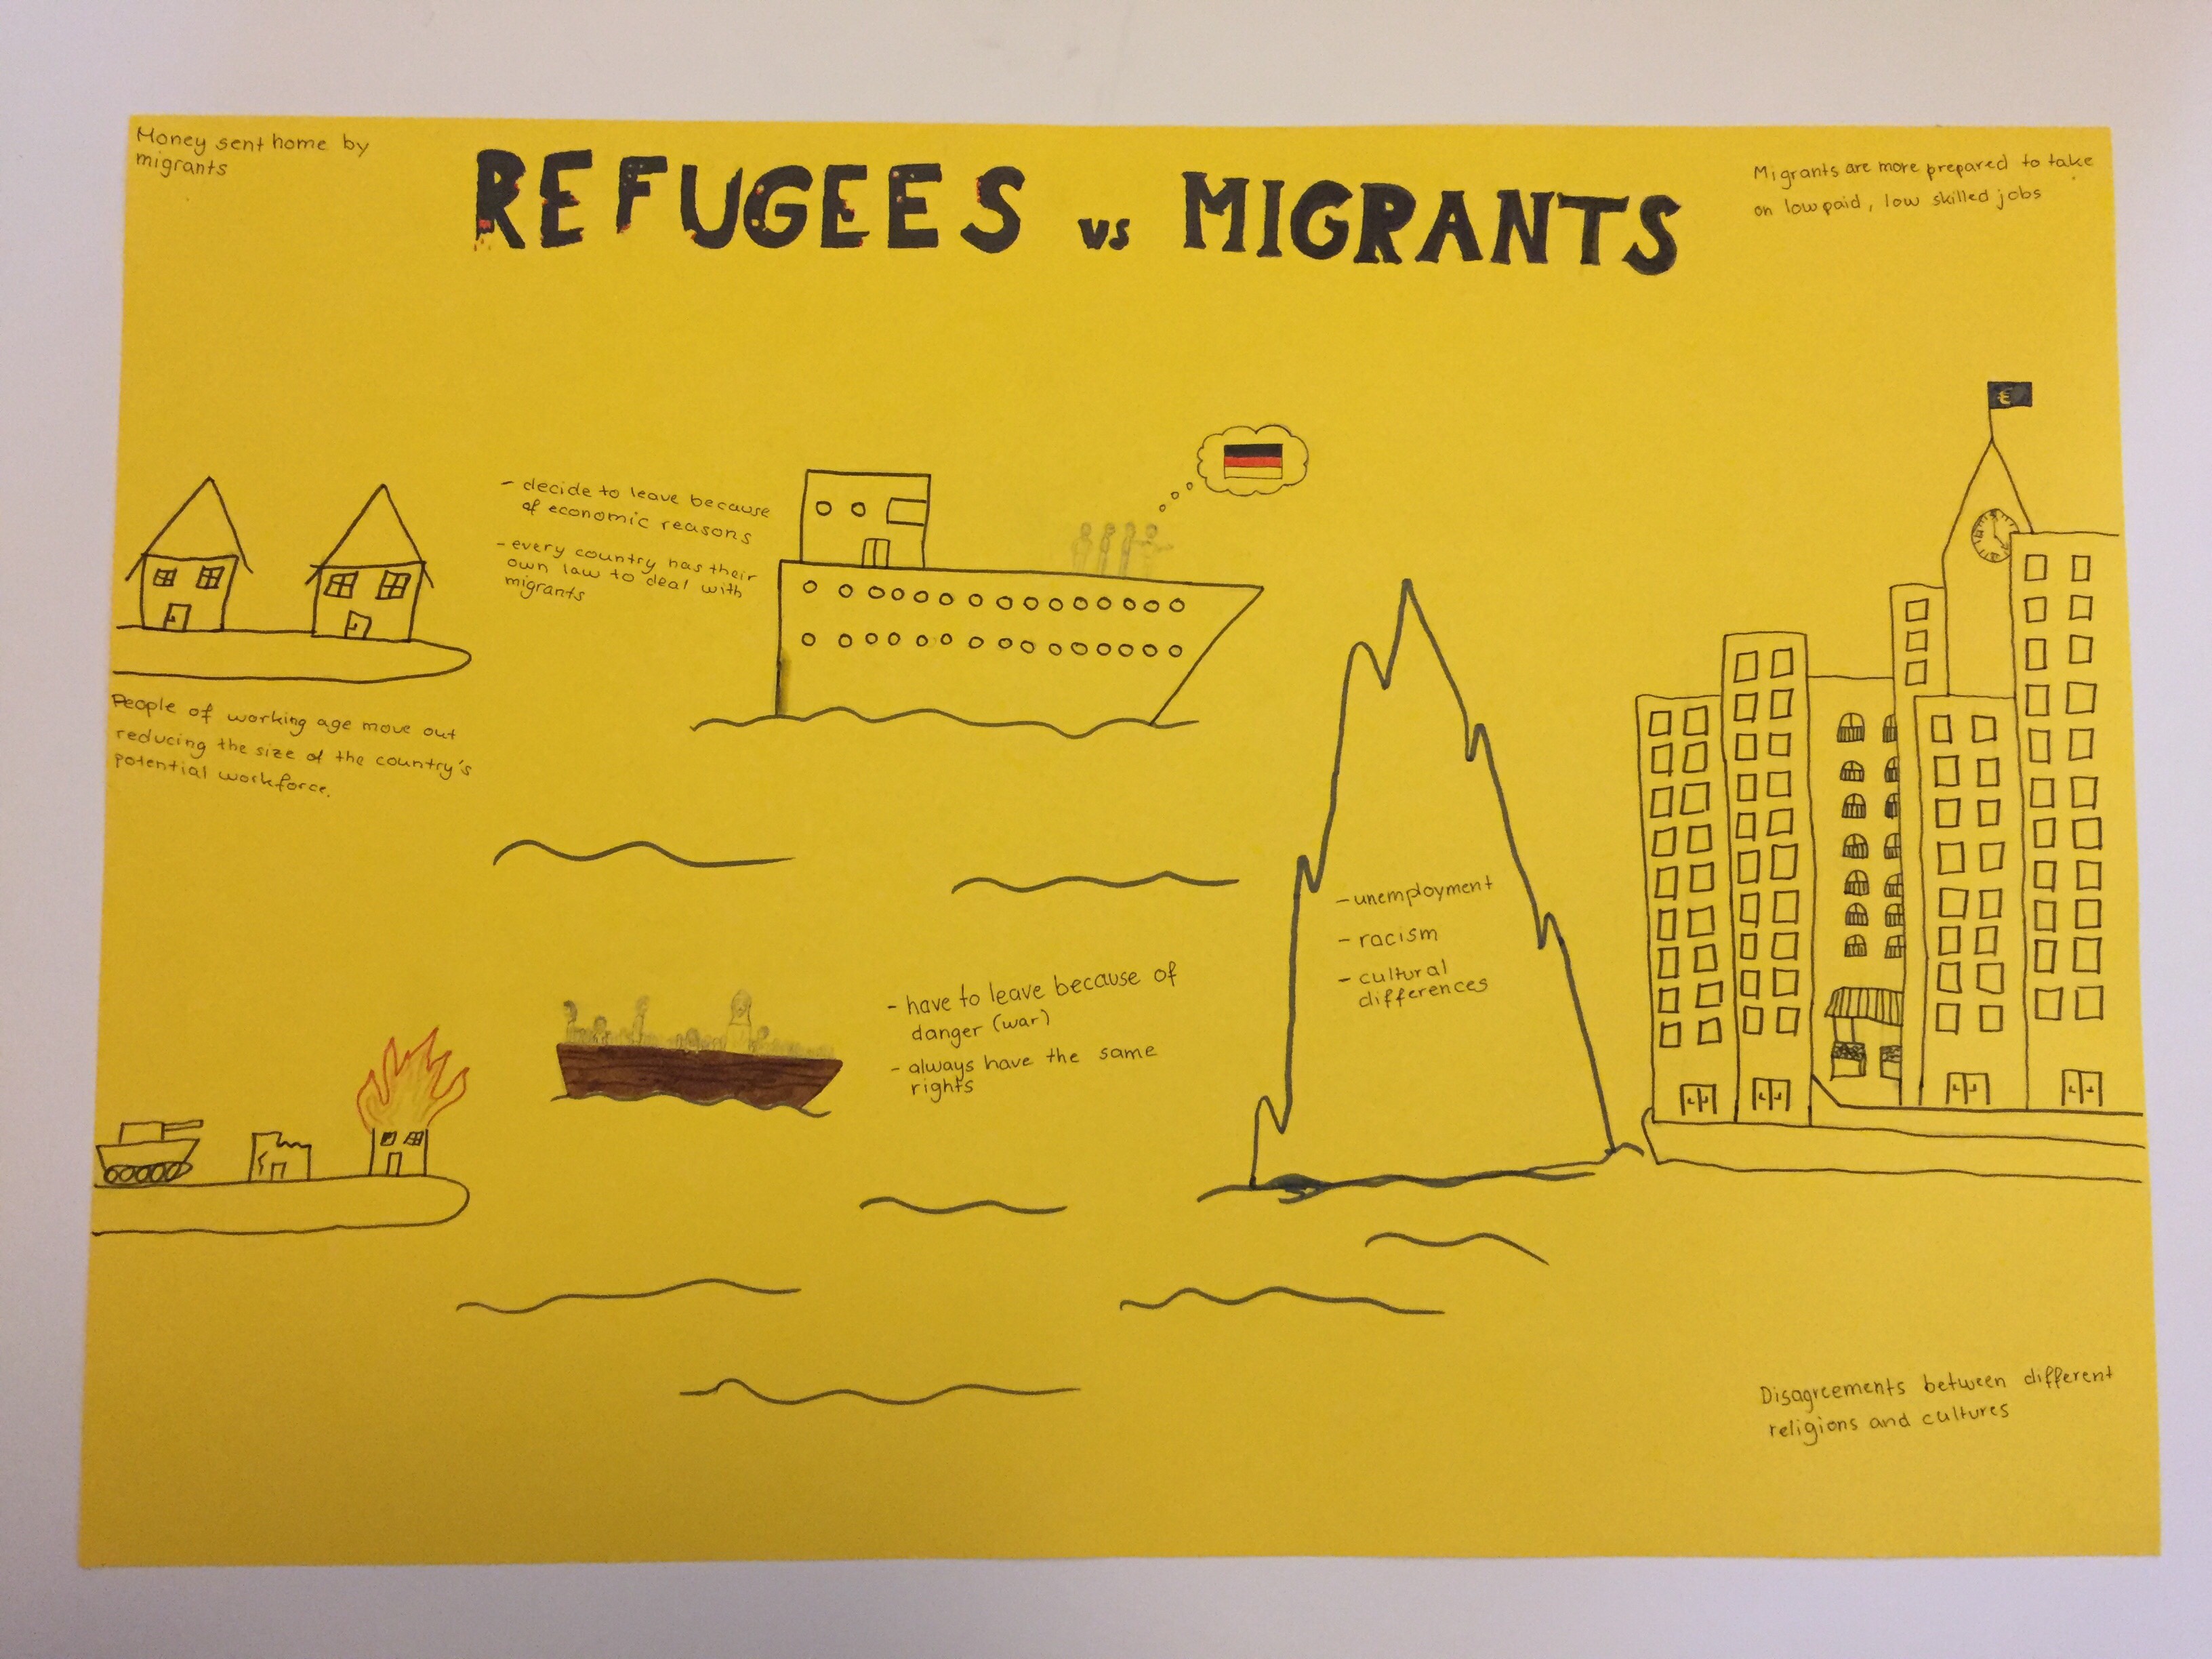 Money sent home by
migrants
REFUGEES vs MIGRANTS
Migrants are more prepared to take
on low paid, low skilled jobs
€
- decide to leave because
of economic reasons
- every country has their
own law to deal with
migrants
People of working age move out
reducing the size of the country's
potential workforce.
- unemployment
- racism
- cultural
differences
- have to leave because of
danger (war)
- always have the same
rights
Disagreements between different
religions and cultures